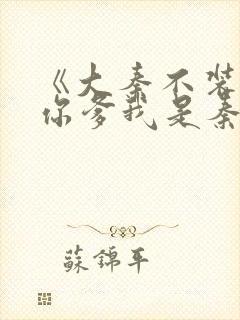 《大秦不装
你爹我是秦
蘇錦年